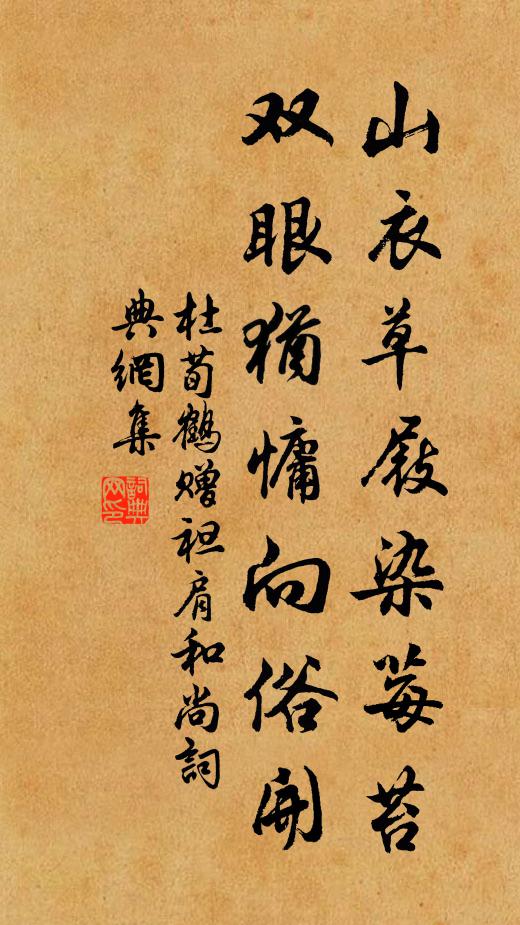 山衣草屐染莓苔
双眼犹慵向俗开
杜荀鹤赠袒肩和尚詞
典網集
詞典網印